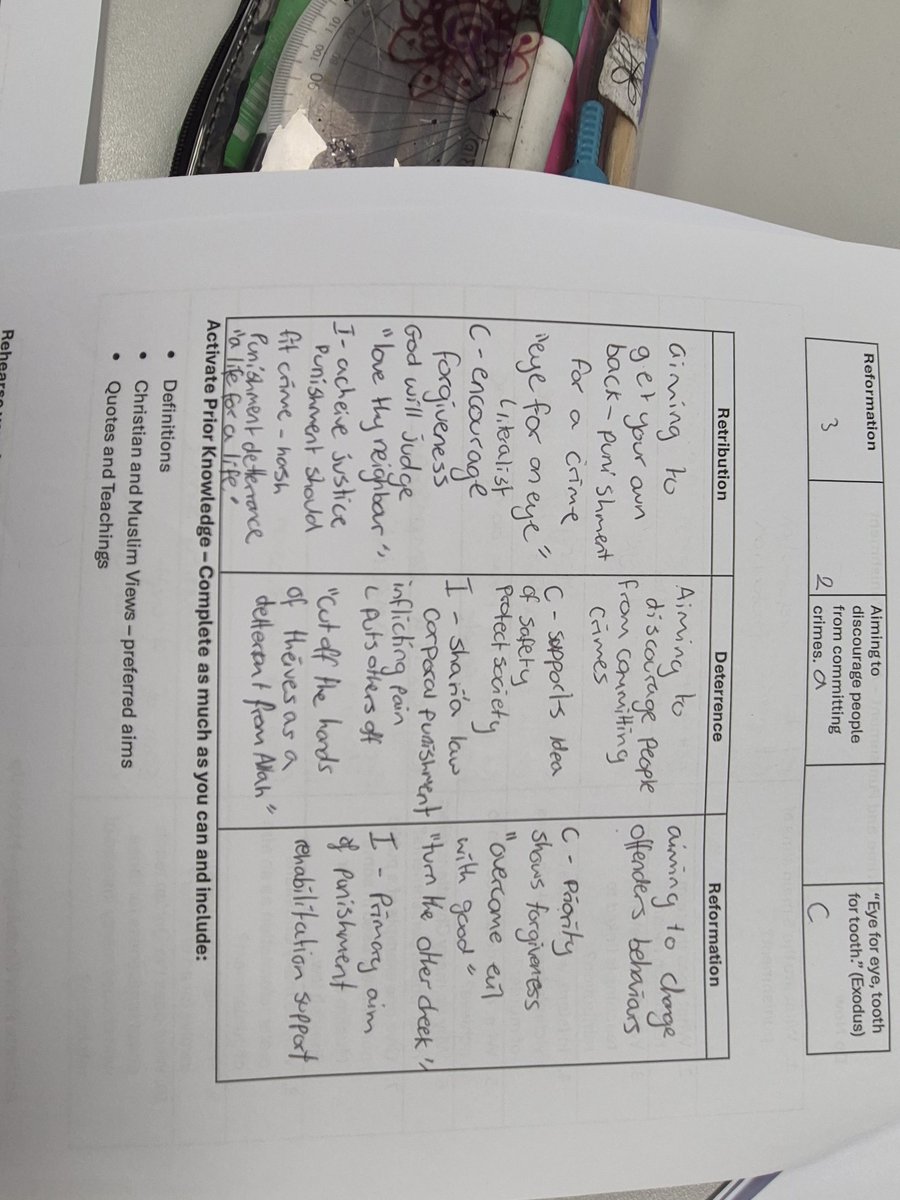 Reformation
3
2
Aiming to
discourage people
from committing
crimes. a
"Eye for eye, tooth
for tooth." (Exodus)
C
Retribution
aiming to
get your own
back - punishment
for a crime
"eye for an eye"
literalist
C - encourage
forgiveness
God will judge
"love thy neighbar"
I - acheive justice
punishment should
fit crime - harsh
punishment deterrance
"a life for a life"
Deterrence
Aiming to
discourage people
from committing
crimes
C - supports idea
of safety
protect society
I - sharia law
corporal punishment
inflicting pain
↳ puts others off
"cut off the hands
of theives as a
detterent from Allah"
Reformation
aiming to change
offenders behaviars
C - Priority
shows forgiveness
"overcome evil
with good"
"turn the other cheek"
I - Primary aim
of punishment
rehabilitation support
Activate Prior Knowledge – Complete as much as you can and include:
• Definitions
• Christian and Muslim Views – preferred aims
• Quotes and Teachings